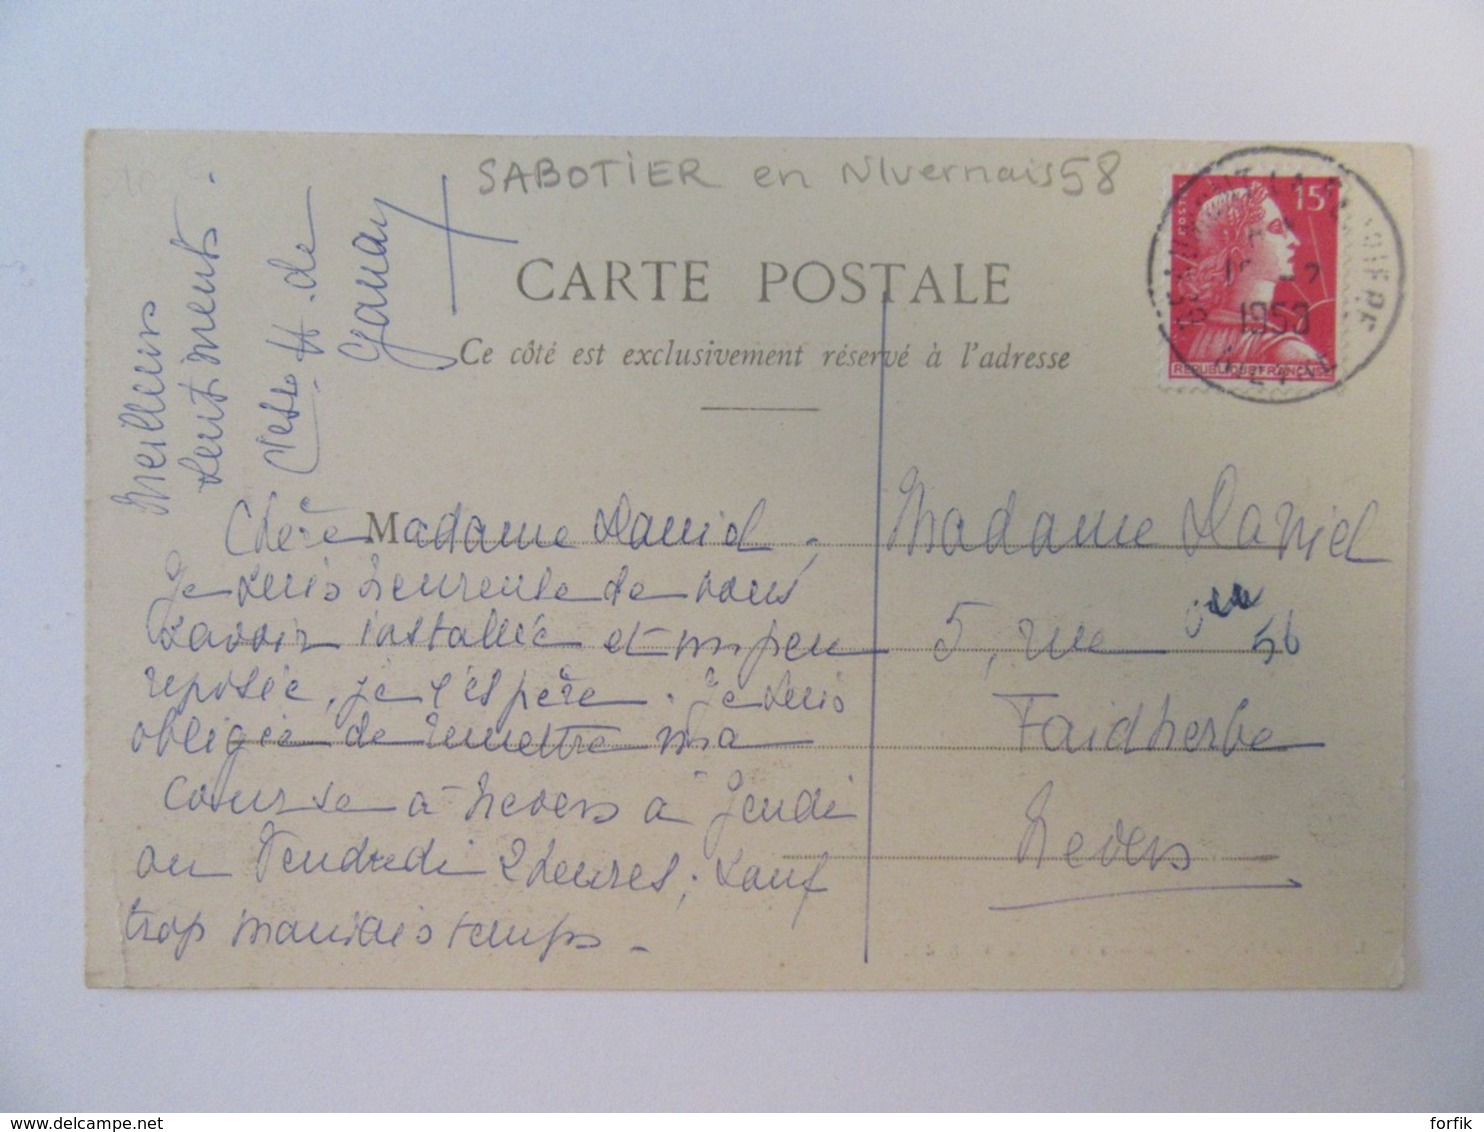 SABOTIER en NIvernais 58
CARTE POSTALE
Ce côté est exclusivement réservé à l'adresse
POSTES
15F
REPUBLIQUE FRANÇAISE
1958
NIEVRE
Chère Madame Daniel,
Je suis heureuse de vous
savoir installée et un peu
reposée, je l'espère. Je suis
obligée de remettre ma
course à Nevers à Jeudi
ou Vendredi 2 heures, sauf
trop mauvais temps -
Meilleurs
sentiments.
Ctesse H. de
Ganay
Madame Daniel
5, rue
56
Faidherbe
Nevers
forfik
delcampe.net